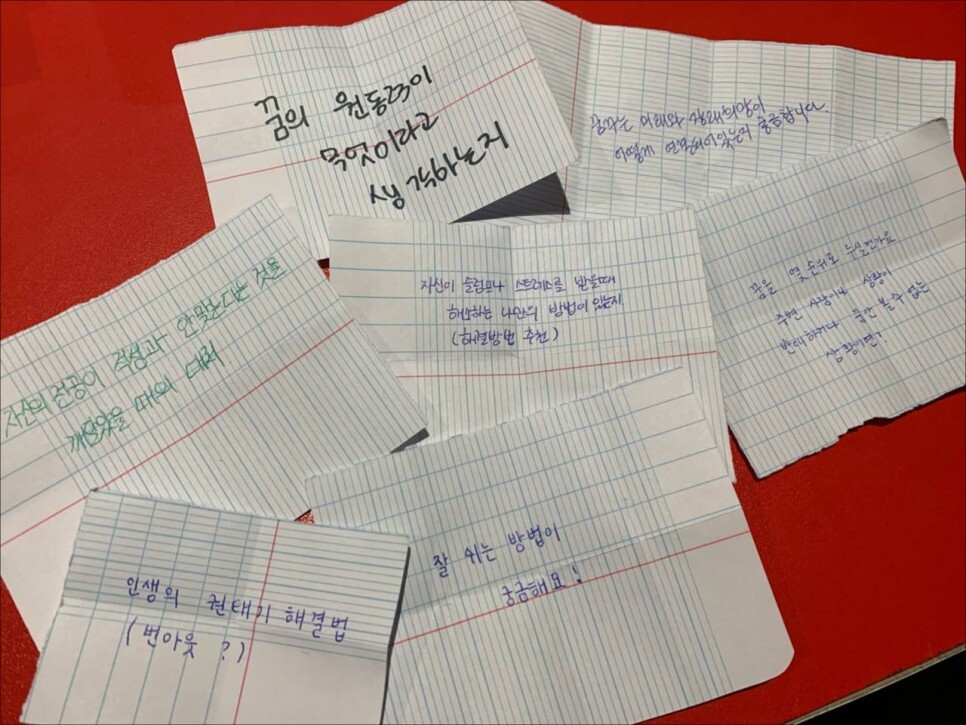 꿈의 원동력이
무엇이라고
생각하는지
꿈꾸는 미래와 장래희망이
어떻게 연관되어있는지 궁금합니다.
자신이 슬럼프나 스트레스를 받을때
해반하는 나만의 방법이 있는지
(해결방법 추천)
꿈을 몇 순위로 두실건가요
주변 사람이나 상황이
반대하거나 품안 볼 수 없는
상황이면?
자신의 전공이 적성과 안맞는다는 것을
깨달았을 때의 대처
잘 쉬는 방법이
궁금해요!
인생의 권태기 해결법
(번아웃 ?)